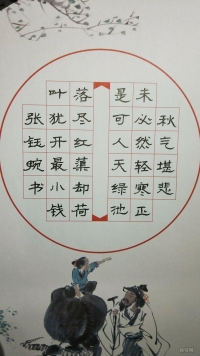 秋气堪悲
未必然轻寒正
是可人天绿池
落尽红蕖却荷
叶犹开最小钱
张钰畹书